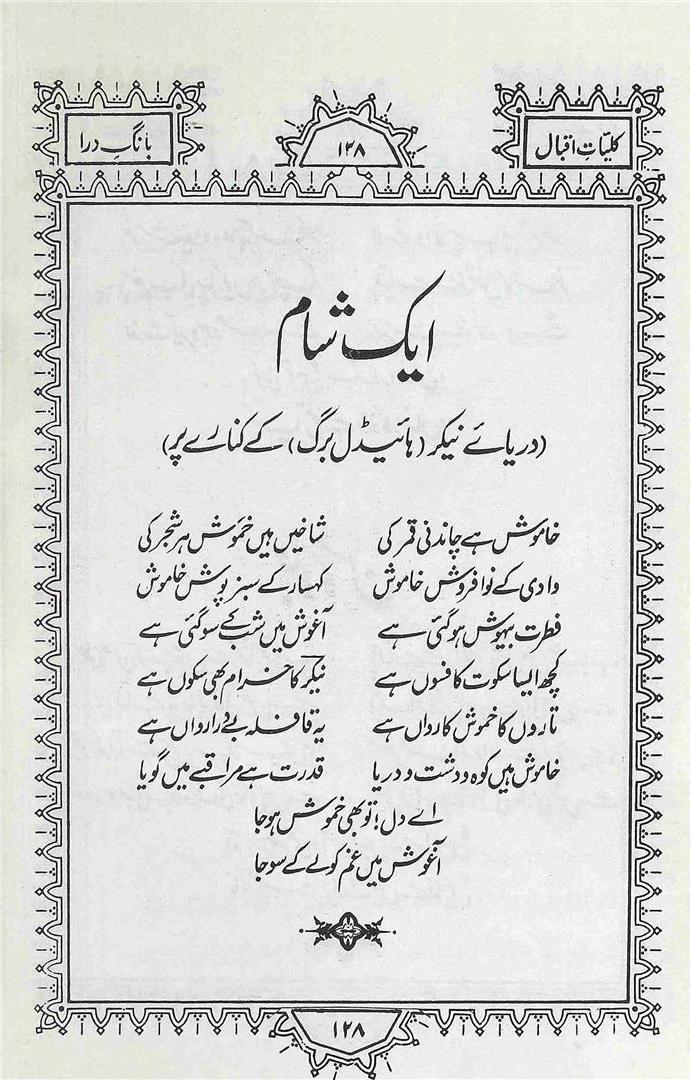 کلیاتِ اقبال
۱۲۸
بانگِ درا
ایک شام
(دریائے نیکر (ہائیڈل برگ) کے کنارے پر)
خاموش ہے چاندنی قمر کی شاخیں ہیں خموش ہر شجر کی
وادی کے نوا فروش خاموش کہسار کے سبز پوش خاموش
فطرت بیہوش ہو گئی ہے آغوش میں شب کے سو گئی ہے
کچھ ایسا سکوت کا فسوں ہے نیکر کا خرام بھی سکوں ہے
تاروں کا خموش کارواں ہے یہ قافلہ بے درا رواں ہے
خاموش ہیں کوہ و دشت و دریا قدرت ہے مراقبے میں گویا
اے دل! تو بھی خموش ہو جا
آغوش میں غم کو لے کے سو جا
۱۲۸